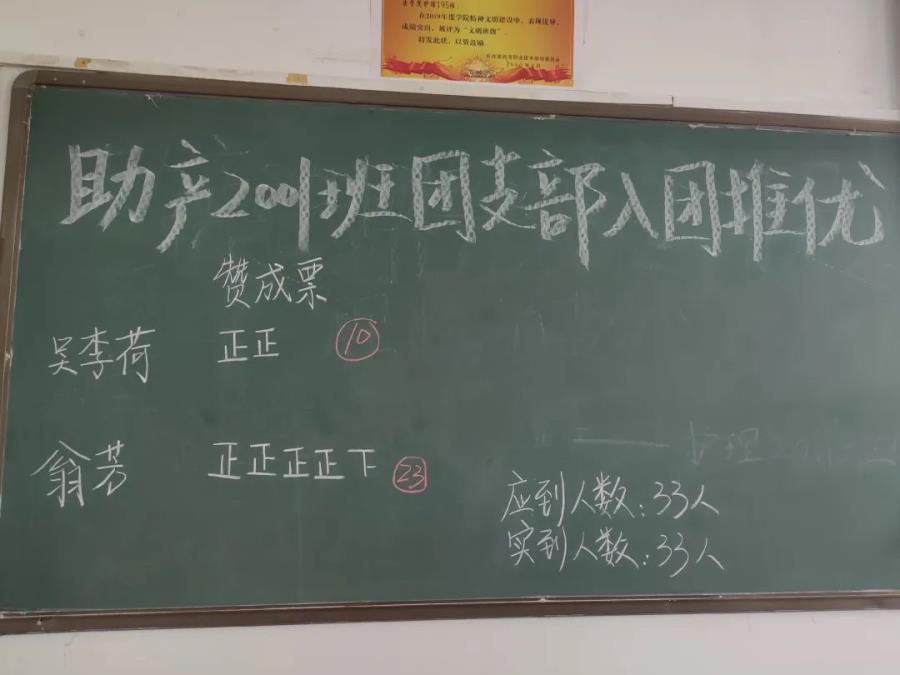 在2019年度学院精神文明建设中，表现优异，
成绩突出，被评为“文明班级”。
特发此状，以资鼓励。
助产2001班团支部入团推优
赞成票
吴李荷 正正 10
翁芳 正正正正下 23
应到人数：33人
实到人数：33人